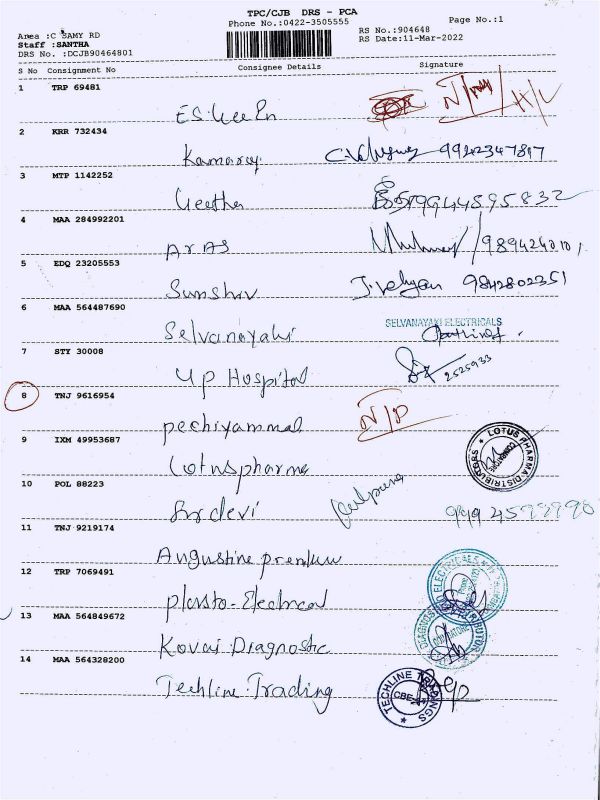 TPC/CJB DRS - PCA
Phone No.:0422-3505555
Page No.:1
Area :C SAMY RD
Staff :SANTHA
DRS No. :DCJB90464801
RS No.:904648
RS Date:11-Mar-2022
S No Consignment No Consignee Details Signature
1 TRP 69481
2 KRR 732434
Kamaraj 9942347817
3 MTP 1142252
Geetha 9944895832
4 MAA 284992201
Aras
5 EDQ 23205553
Sunshiv J.velyan 9842802351
6 MAA 564487690
Selvanayaki SELVANAYAKI ELECTRICALS
7 STY 30008
UP Hospital 2525933
8 TNJ 9616954
pechiyammal N/D
9 IXM 49953687
Lotuspharma LOTUS PHARMA DISTRIBUTORS COIMBATORE
10 POL 88223
Sridevi
11 TNJ 9219174
Angustine
12 TRP 7069491
Plasto-Electrical
13 MAA 564849672
Kovai Diagnostic
14 MAA 564328200
Techline Trading TECHLINE TRADINGS CBE